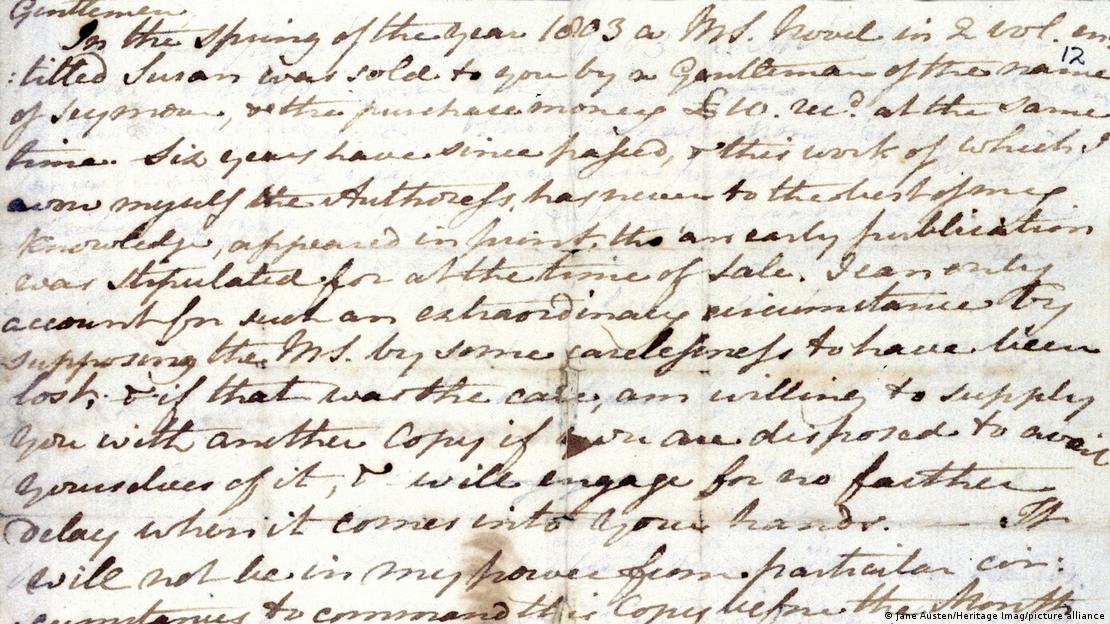 Gentlemen
In the Spring of the year 1803 a MS. Novel in 2 vol. en
12
:titled Susan was sold to you by a Gentleman of the name
of Seymour, & the purchase money £10. recd. at the same
time. Six years have since passed, & this work of which I
avow myself the Authoress, has never to the best of my
knowledge, appeared in print, tho' an early publication
was stipulated for at the time of Sale. I can only
account for such an extraordinary circumstance by
supposing the MS. by some carelessness to have been
lost; & if that was the case, am willing to supply
you with another Copy if you are disposed to avail
yourselves of it, & will engage for no farther
delay when it comes into your hands. — It
will not be in my power from particular cir:
cumstances to command this Copy before the Month
© Jane Austen/Heritage Imag/picture alliance